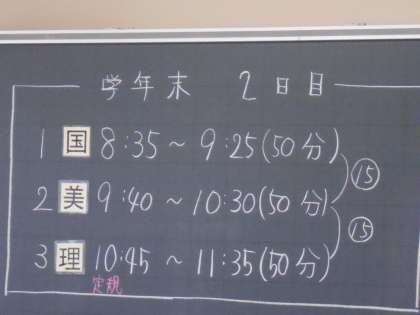 学年末 2日目
1 国 8:35～9:25(50分)
⑮
2 美 9:40～10:30(50分)
⑮
3 理 10:45～11:35(50分)
定規